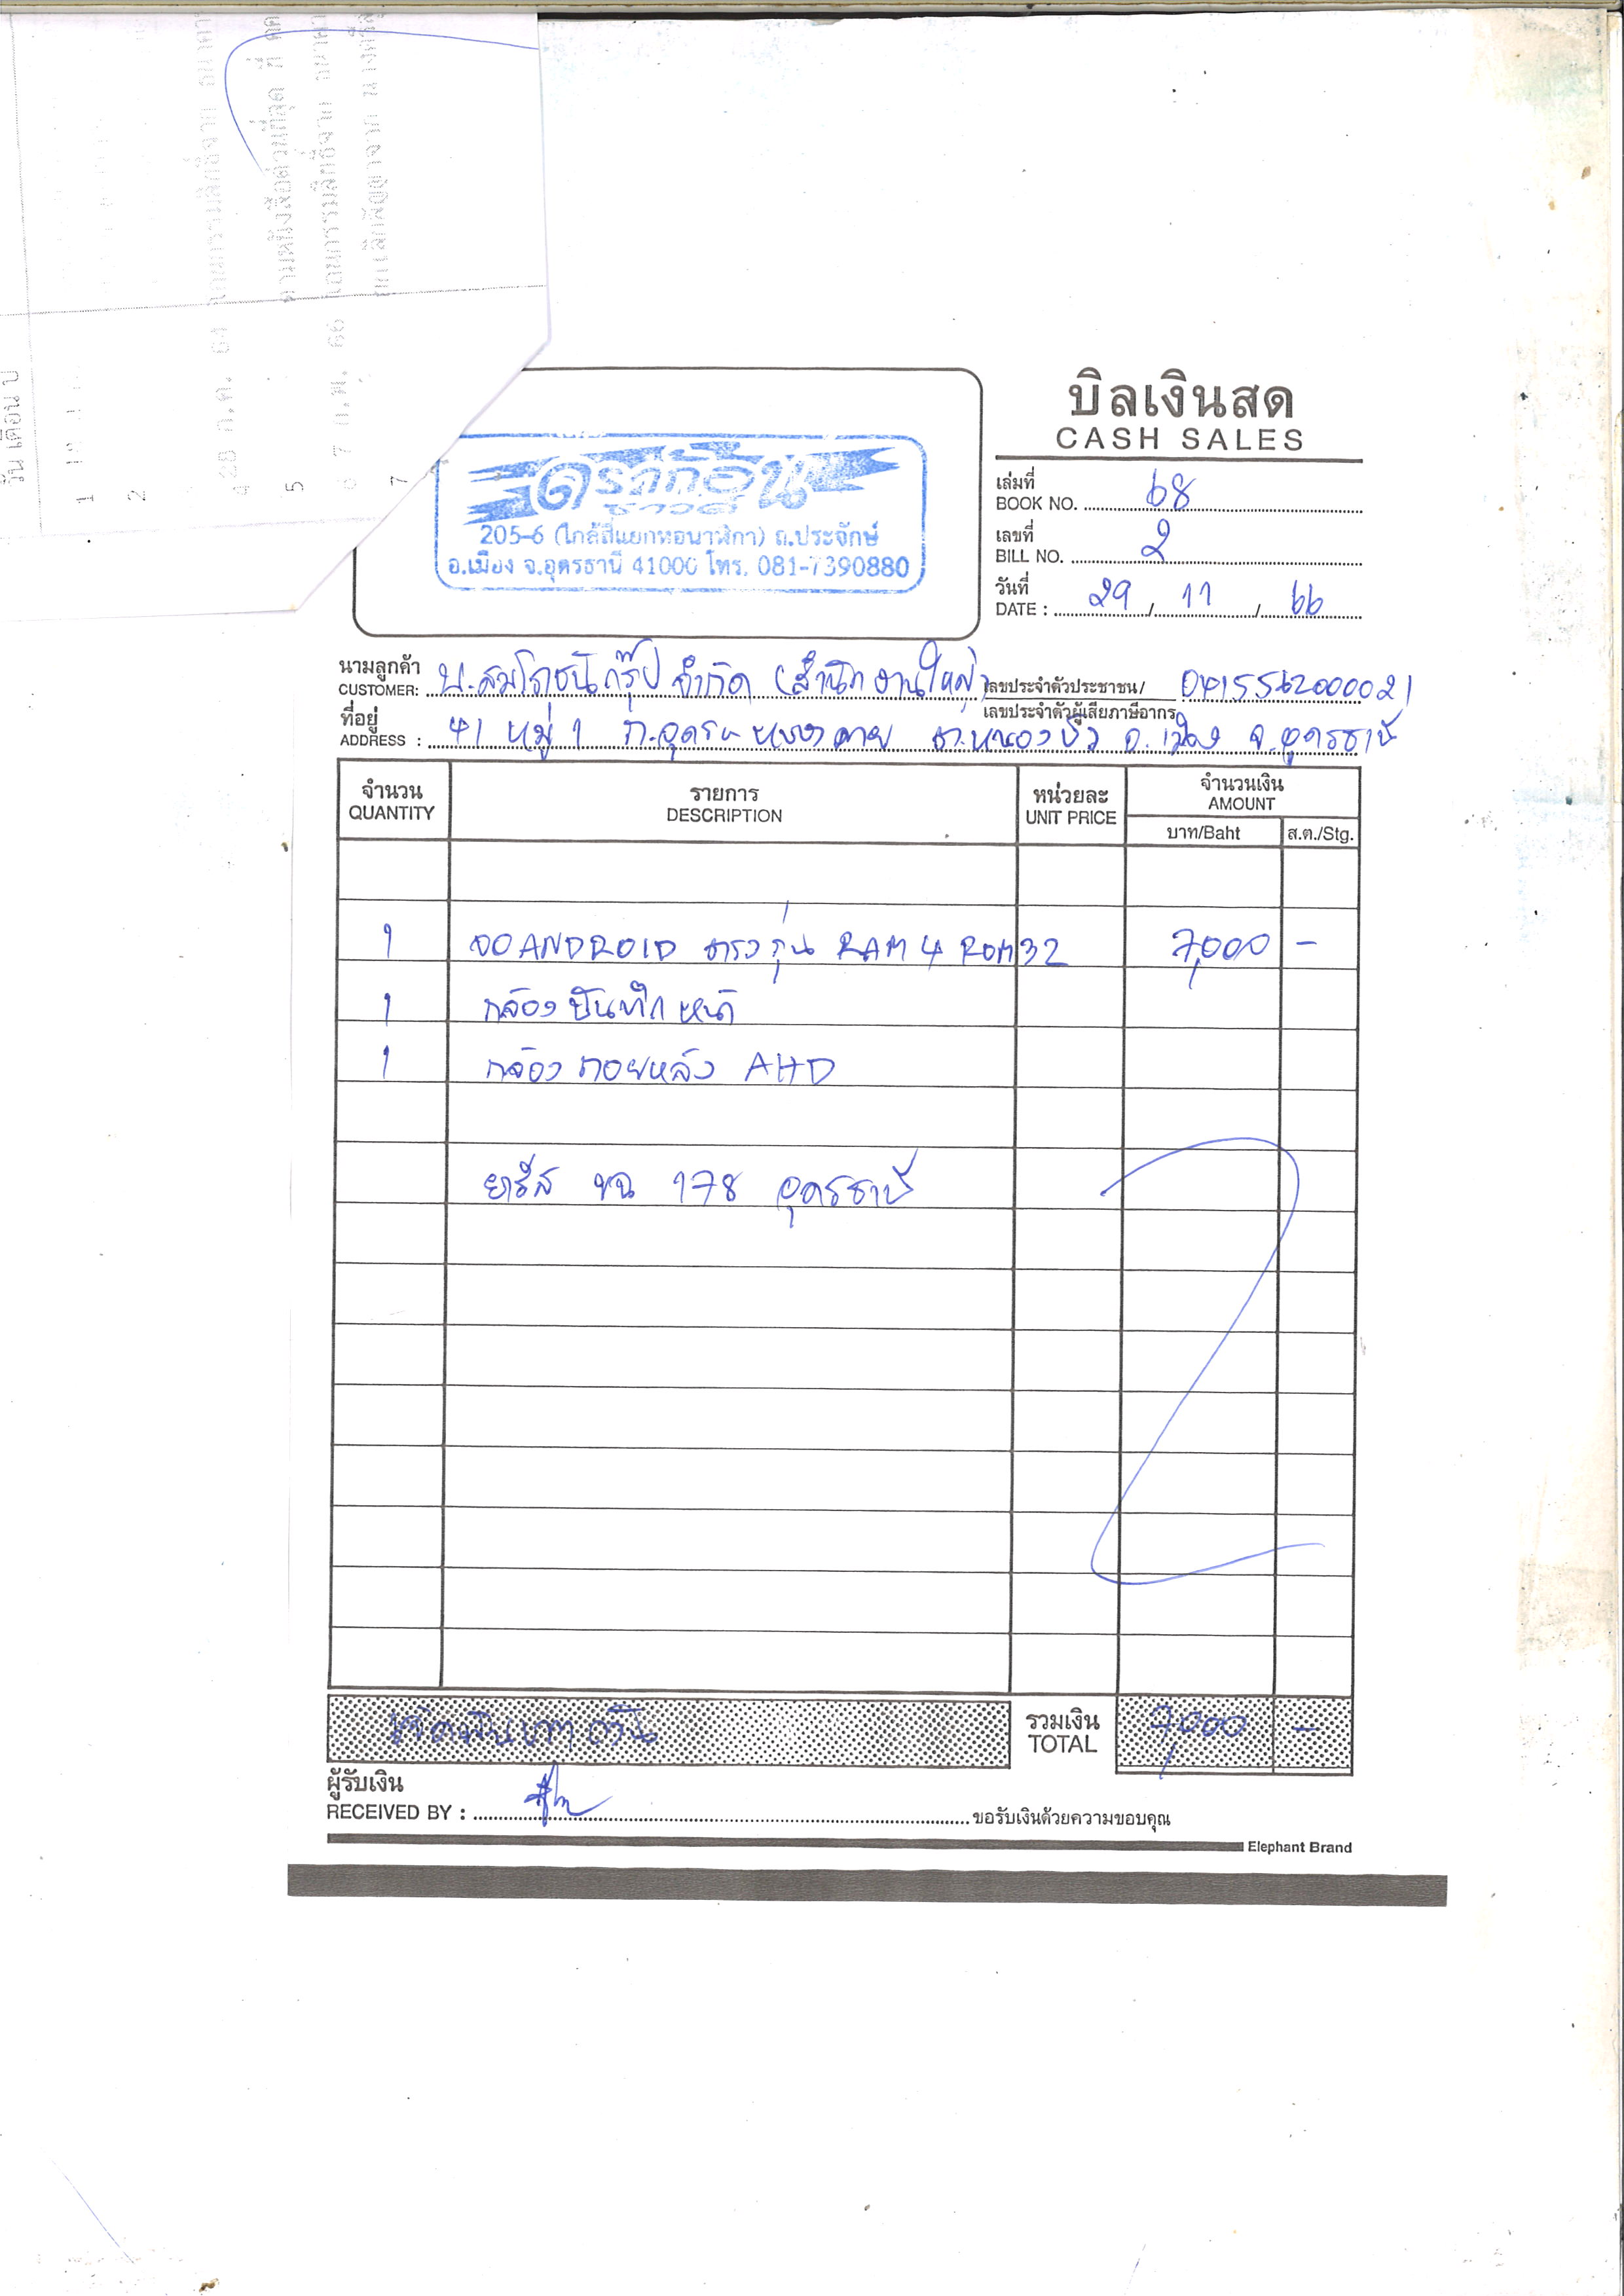 บิลเงินสด
CASH SALES
ดราก้อน
ซาวด์
205-6 (ใกล้สี่แยกหอนาฬิกา) ถ.ประจักษ์
อ.เมือง จ.อุดรธานี 41000 โทร. 081-7390880
เล่มที่
BOOK NO. 68
เลขที่
BILL NO. 2
วันที่
DATE : 29 / 11 / 66
นามลูกค้า
CUSTOMER: บ.สมโภชน์กรุ๊ป จำกัด (สำนักงานใหญ่) เลขประจำตัวประชาชน/ 0415562000021
เลขประจำตัวผู้เสียภาษีอากร
ที่อยู่
ADDRESS : 41 หมู่ 1 ถ.อุดร-หนองคาย ต.หนองบัว อ.เมือง จ.อุดรธานี
จำนวน รายการ หน่วยละ จำนวนเงิน
QUANTITY DESCRIPTION UNIT PRICE AMOUNT
บาท/Baht ส.ต./Stg.
1 จอ ANDROID ตรงรุ่น RAM 4 ROM 32 7,000 -
1 กล้องบันทึกหน้า
1 กล้องถอยหลัง AHD
ยาริส ขฉ 178 อุดรธานี
เจ็ดพันบาทถ้วน รวมเงิน 7,000 -
TOTAL
ผู้รับเงิน
RECEIVED BY : ขอรับเงินด้วยความขอบคุณ
Elephant Brand